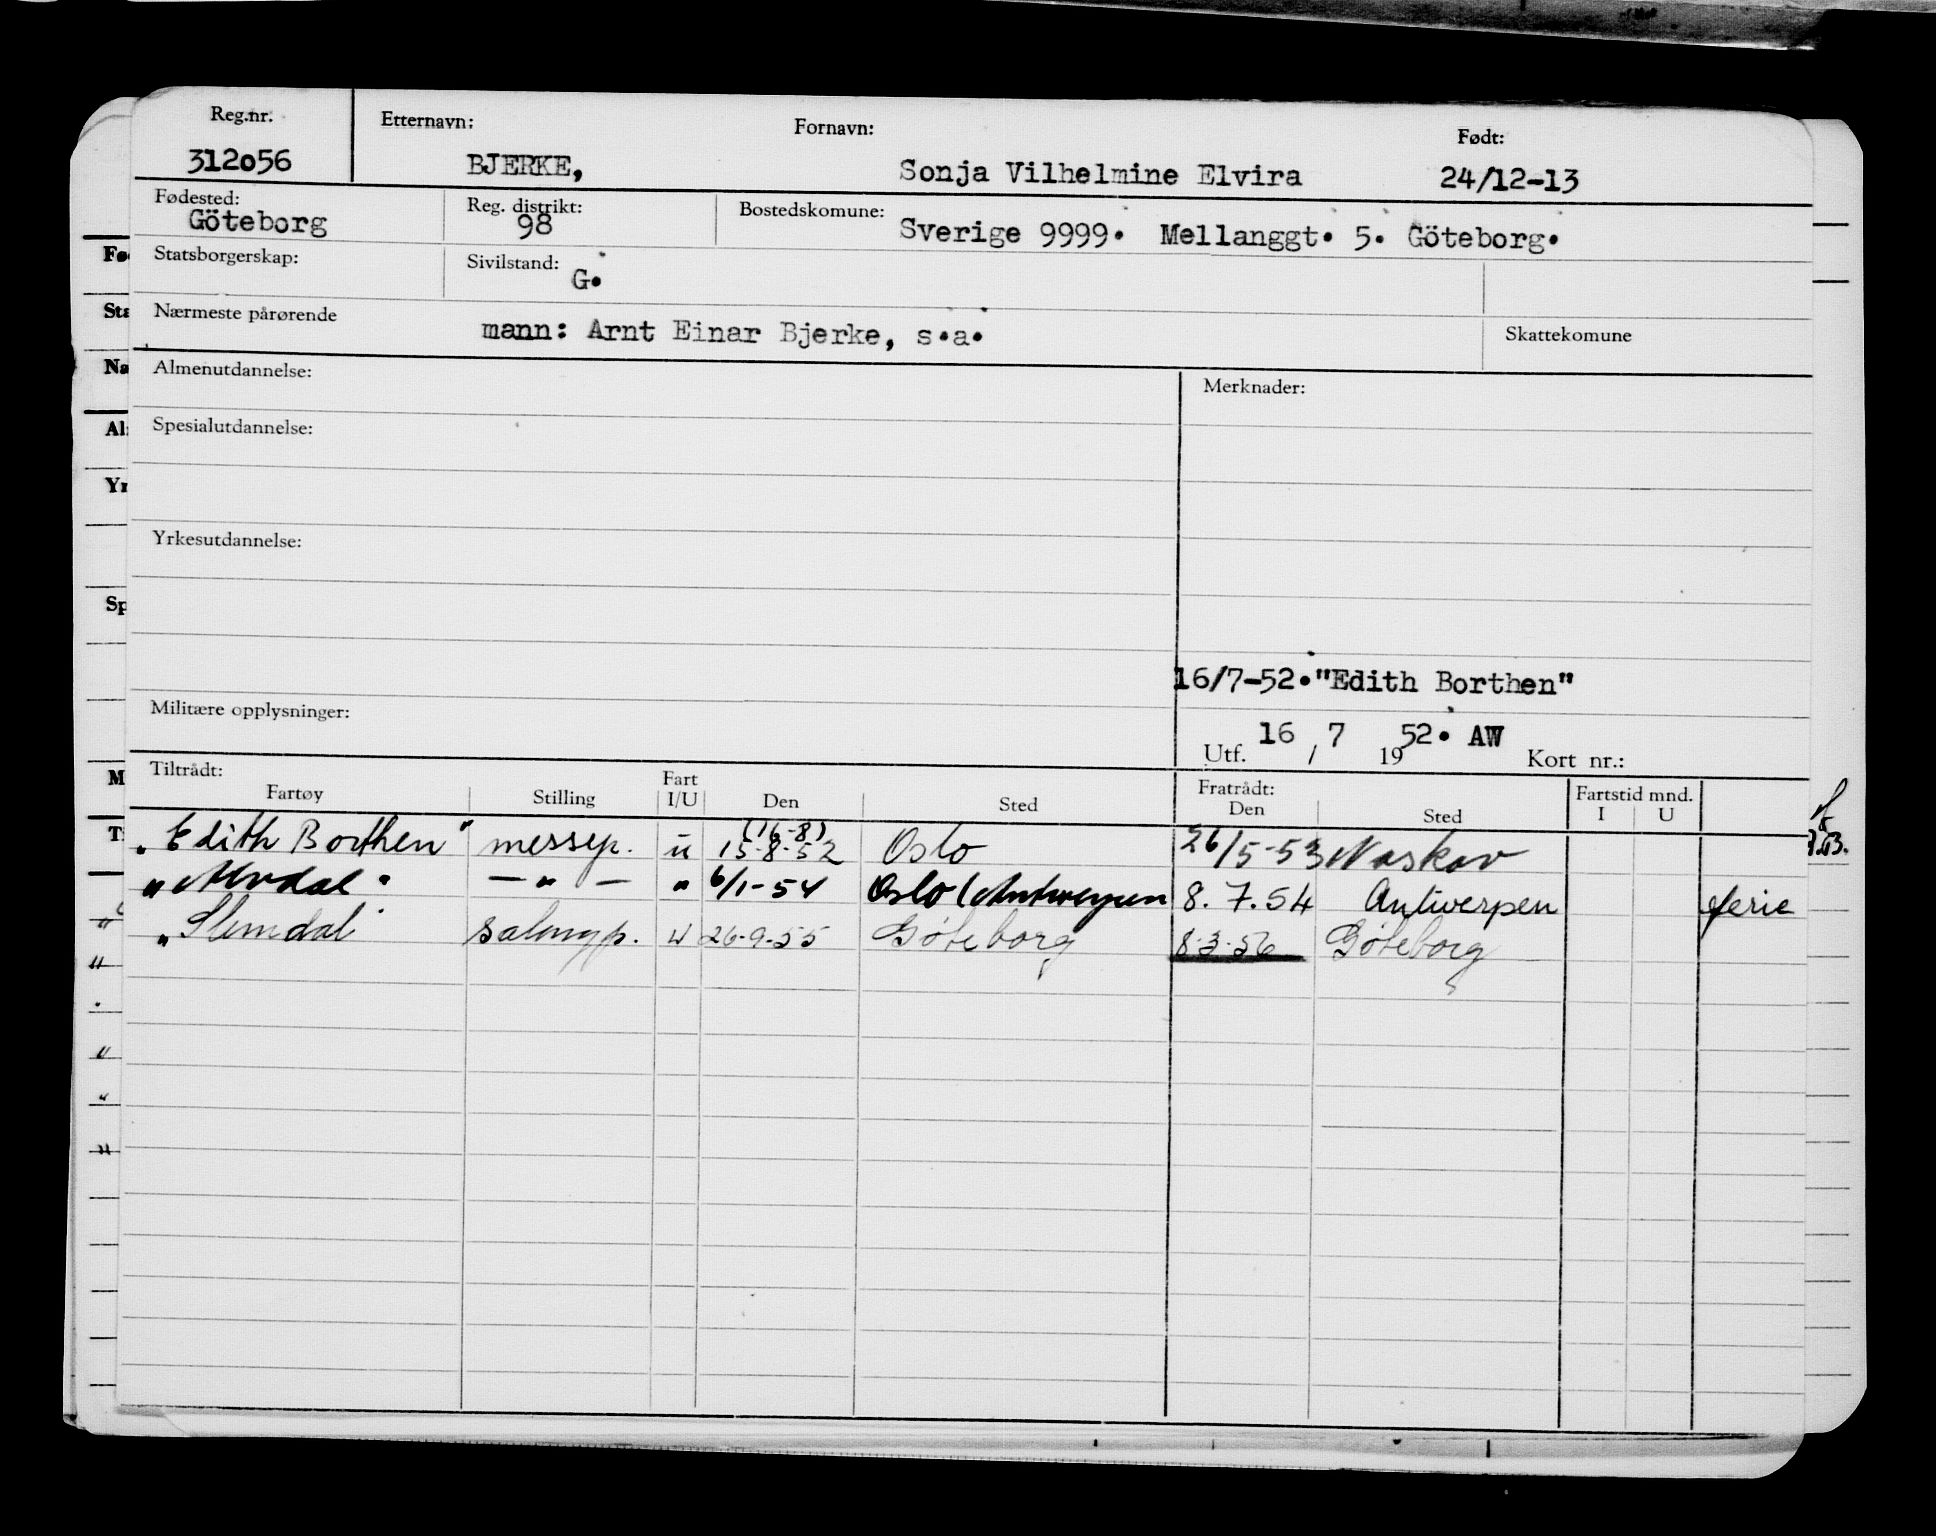 Reg.nr. Etternavn: Fornavn: Født:
312o56 BJERKE, Sonja Vilhelmine Elvira 24/12-13
Fødested: Reg. distrikt: Bostedskomune:
Göteborg 98 Sverige 9999. Mellanggt. 5. Göteborg.
Statsborgerskap: Sivilstand: G.
Nærmeste pårørende mann: Arnt Einar Bjerke, s.a. Skattekomune
Almenutdannelse: Merknader:
Spesialutdannelse:
Yrkesutdannelse:
16/7-52."Edith Borthen"
Militære opplysninger:
Utf. 16 / 7 19 52. AW Kort nr.:
Tiltrådt: Fart Fratrådt: Fartstid mnd.
Fartøy Stilling I/U Den Sted Den Sted I U
(16-8)
"Edith Borthen" messep. u 15-8-52 Oslo 26/5-53 Naskov
" — " — " 6/1-54 Oslo (Antwerpen 8. 7. 54 Antwerpen ferie
"Slemdal" salongp. u 26-9-55 Göteborg 8-3-56 Göteborg